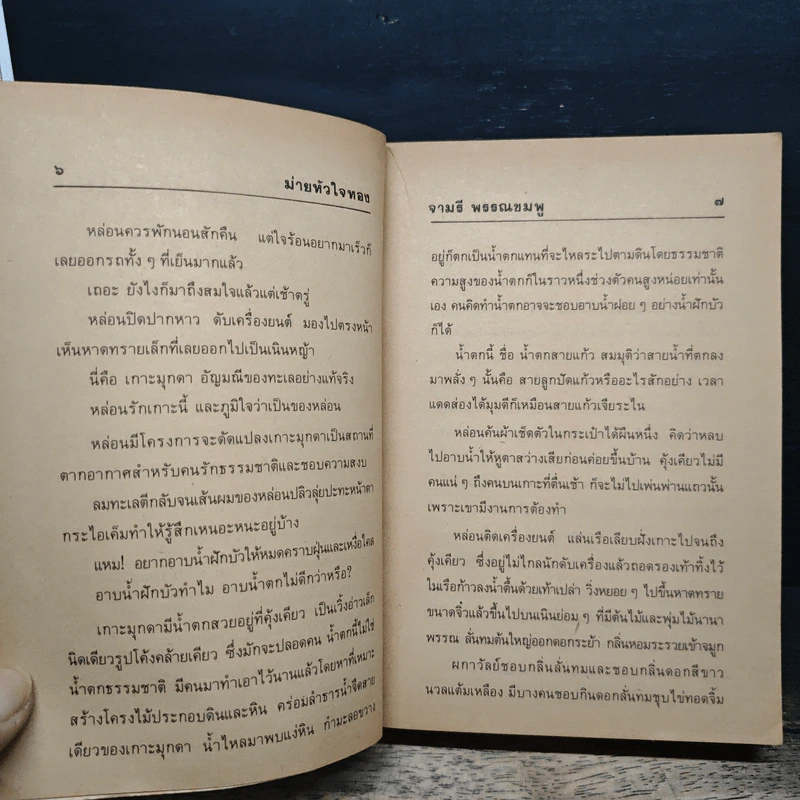 ๖
ม่ายหัวใจทอง
หล่อนควรพักนอนสักคืน แต่ใจร้อนอยากมาเร็วก็
เลยออกรถทั้ง ๆ ที่เย็นมากแล้ว
เถอะ ยังไงก็มาถึงสมใจแล้วแต่เช้าตรู่
หล่อนปิดปากหาว ดับเครื่องยนต์ มองไปตรงหน้า
เห็นหาดทรายเล็กที่เลยออกไปเป็นเนินหญ้า
นี่คือ เกาะมุกดา อัญมณีของทะเลอย่างแท้จริง
หล่อนรักเกาะนี้ และภูมิใจว่าเป็นของหล่อน
หล่อนมีโครงการจะดัดแปลงเกาะมุกดาเป็นสถานที่
ตากอากาศสำหรับคนรักธรรมชาติและชอบความสงบ
ลมทะเลตีกลับจนเส้นผมของหล่อนปลิวลุ่ยปะทะหน้าตา
กระไอเค็มทำให้รู้สึกเหนอะหนะอยู่บ้าง
แหม! อยากอาบน้ำฝักบัวให้หมดคราบฝุ่นและเหงื่อไคล
อาบน้ำฝักบัวทำไม อาบน้ำตกไม่ดีกว่าหรือ?
เกาะมุกดามีน้ำตกสวยอยู่ที่คุ้งเคียว เป็นเวิ้งอ่าวเล็ก
นิดเดียวรูปโค้งคล้ายเคียว ซึ่งมักจะปลอดคน น้ำตกนี้ไม่ใช่
น้ำตกธรรมชาติ มีคนมาทำเอาไว้นานแล้วโดยหาที่เหมาะ
สร้างโครงไม้ประกอบดินและหิน คร่อมลำธารน้ำจืดสาย
เดียวของเกาะมุกดา น้ำไหลมาพบแง่หิน กำมะลอขวาง
จามรี พรรณชมพู
๗
อยู่ก็ตกเป็นน้ำตกแทนที่จะไหลระไปตามดินโดยธรรมชาติ
ความสูงของน้ำตกก็ในราวหนึ่งช่วงตัวคนสูงหน่อยเท่านั้น
เอง คนคิดทำน้ำตกอาจจะชอบอาบน้ำฝอย ๆ อย่างน้ำฝักบัว
ก็ได้
น้ำตกนี้ ชื่อ น้ำตกสายแก้ว สมมุติว่าสายน้ำที่ตกลง
มาพลั่ง ๆ นั้นคือ สายลูกปัดแก้วหรืออะไรสักอย่าง เวลา
แดดส่องได้มุมดีก็เหมือนสายแก้วเจียระไน
หล่อนค้นผ้าเช็ดตัวในกระเป๋าได้ผืนหนึ่ง คิดว่าหลบ
ไปอาบน้ำให้หูตาสว่างเสียก่อนค่อยขึ้นบ้าน คุ้งเคียวไม่มี
คนแน่ ๆ ถึงคนบนเกาะที่ตื่นเช้า ก็จะไม่ไปเพ่นพ่านแถวนั้น
เพราะเขามีงานการต้องทำ
หล่อนติดเครื่องยนต์ แล่นเรือเลียบฝั่งเกาะไปจนถึง
คุ้งเคียว ซึ่งอยู่ไม่ไกลนักดับเครื่องแล้วถอดรองเท้าทิ้งไว้
ในเรือก้าวลงน้ำตื้นด้วยเท้าเปล่า วิ่งหยอย ๆ ไปขึ้นหาดทราย
ขนาดจิ๋วแล้วขึ้นไปบนเนินย่อม ๆ ที่มีต้นไม้และพุ่มไม้นานา
พรรณ ลั่นทมต้นใหญ่ออกดอกระย้า กลิ่นหอมระรวยเข้าจมูก
ผกาวัลย์ชอบกลิ่นลั่นทมและชอบกลิ่นดอกสีขาว
นวลแต้มเหลือง มีบางคนชอบกินดอกลั่นทมชุบไข่ทอดจิ้ม